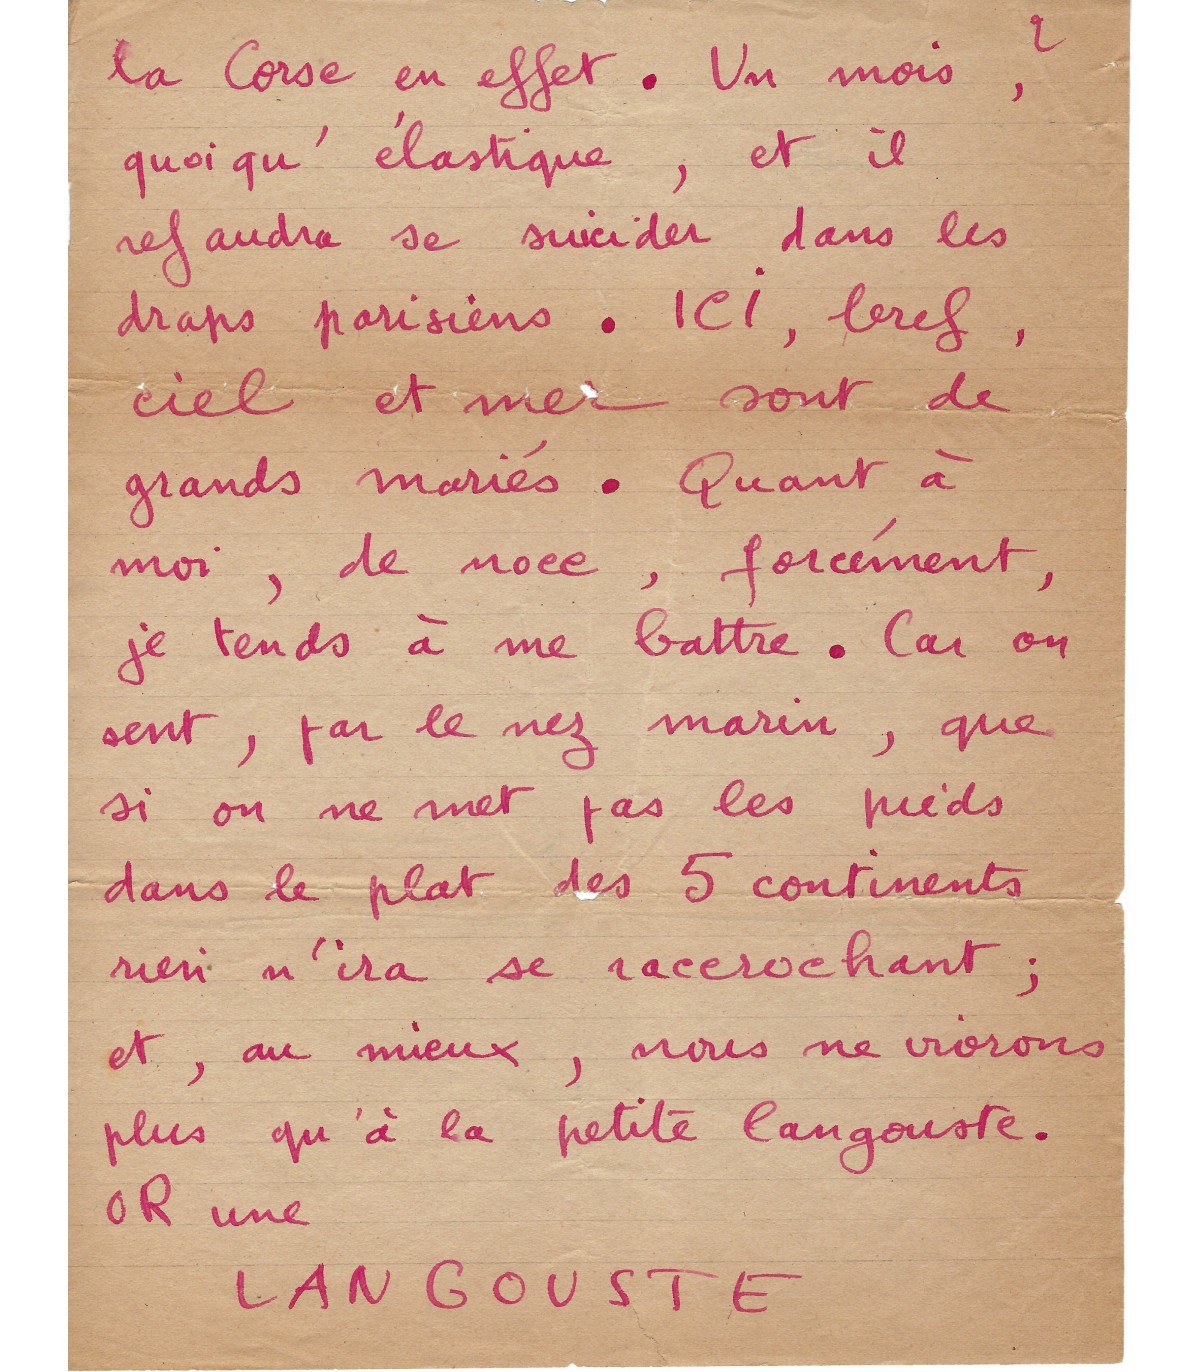 2
la Corse en effet. Un mois,
quoiqu'élastique, et il
refaudra se suicider dans les
draps parisiens. ICI, bref,
ciel et mer sont de
grands mariés. Quant à
moi, de noce, forcément,
je tends à me battre. Car on
sent, par le nez marin, que
si on ne met pas les pieds
dans le plat des 5 continents
rien n'ira se raccrochant ;
et, au mieux, nous ne vivrons
plus qu'à la petite langouste.
OR une
LANGOUSTE